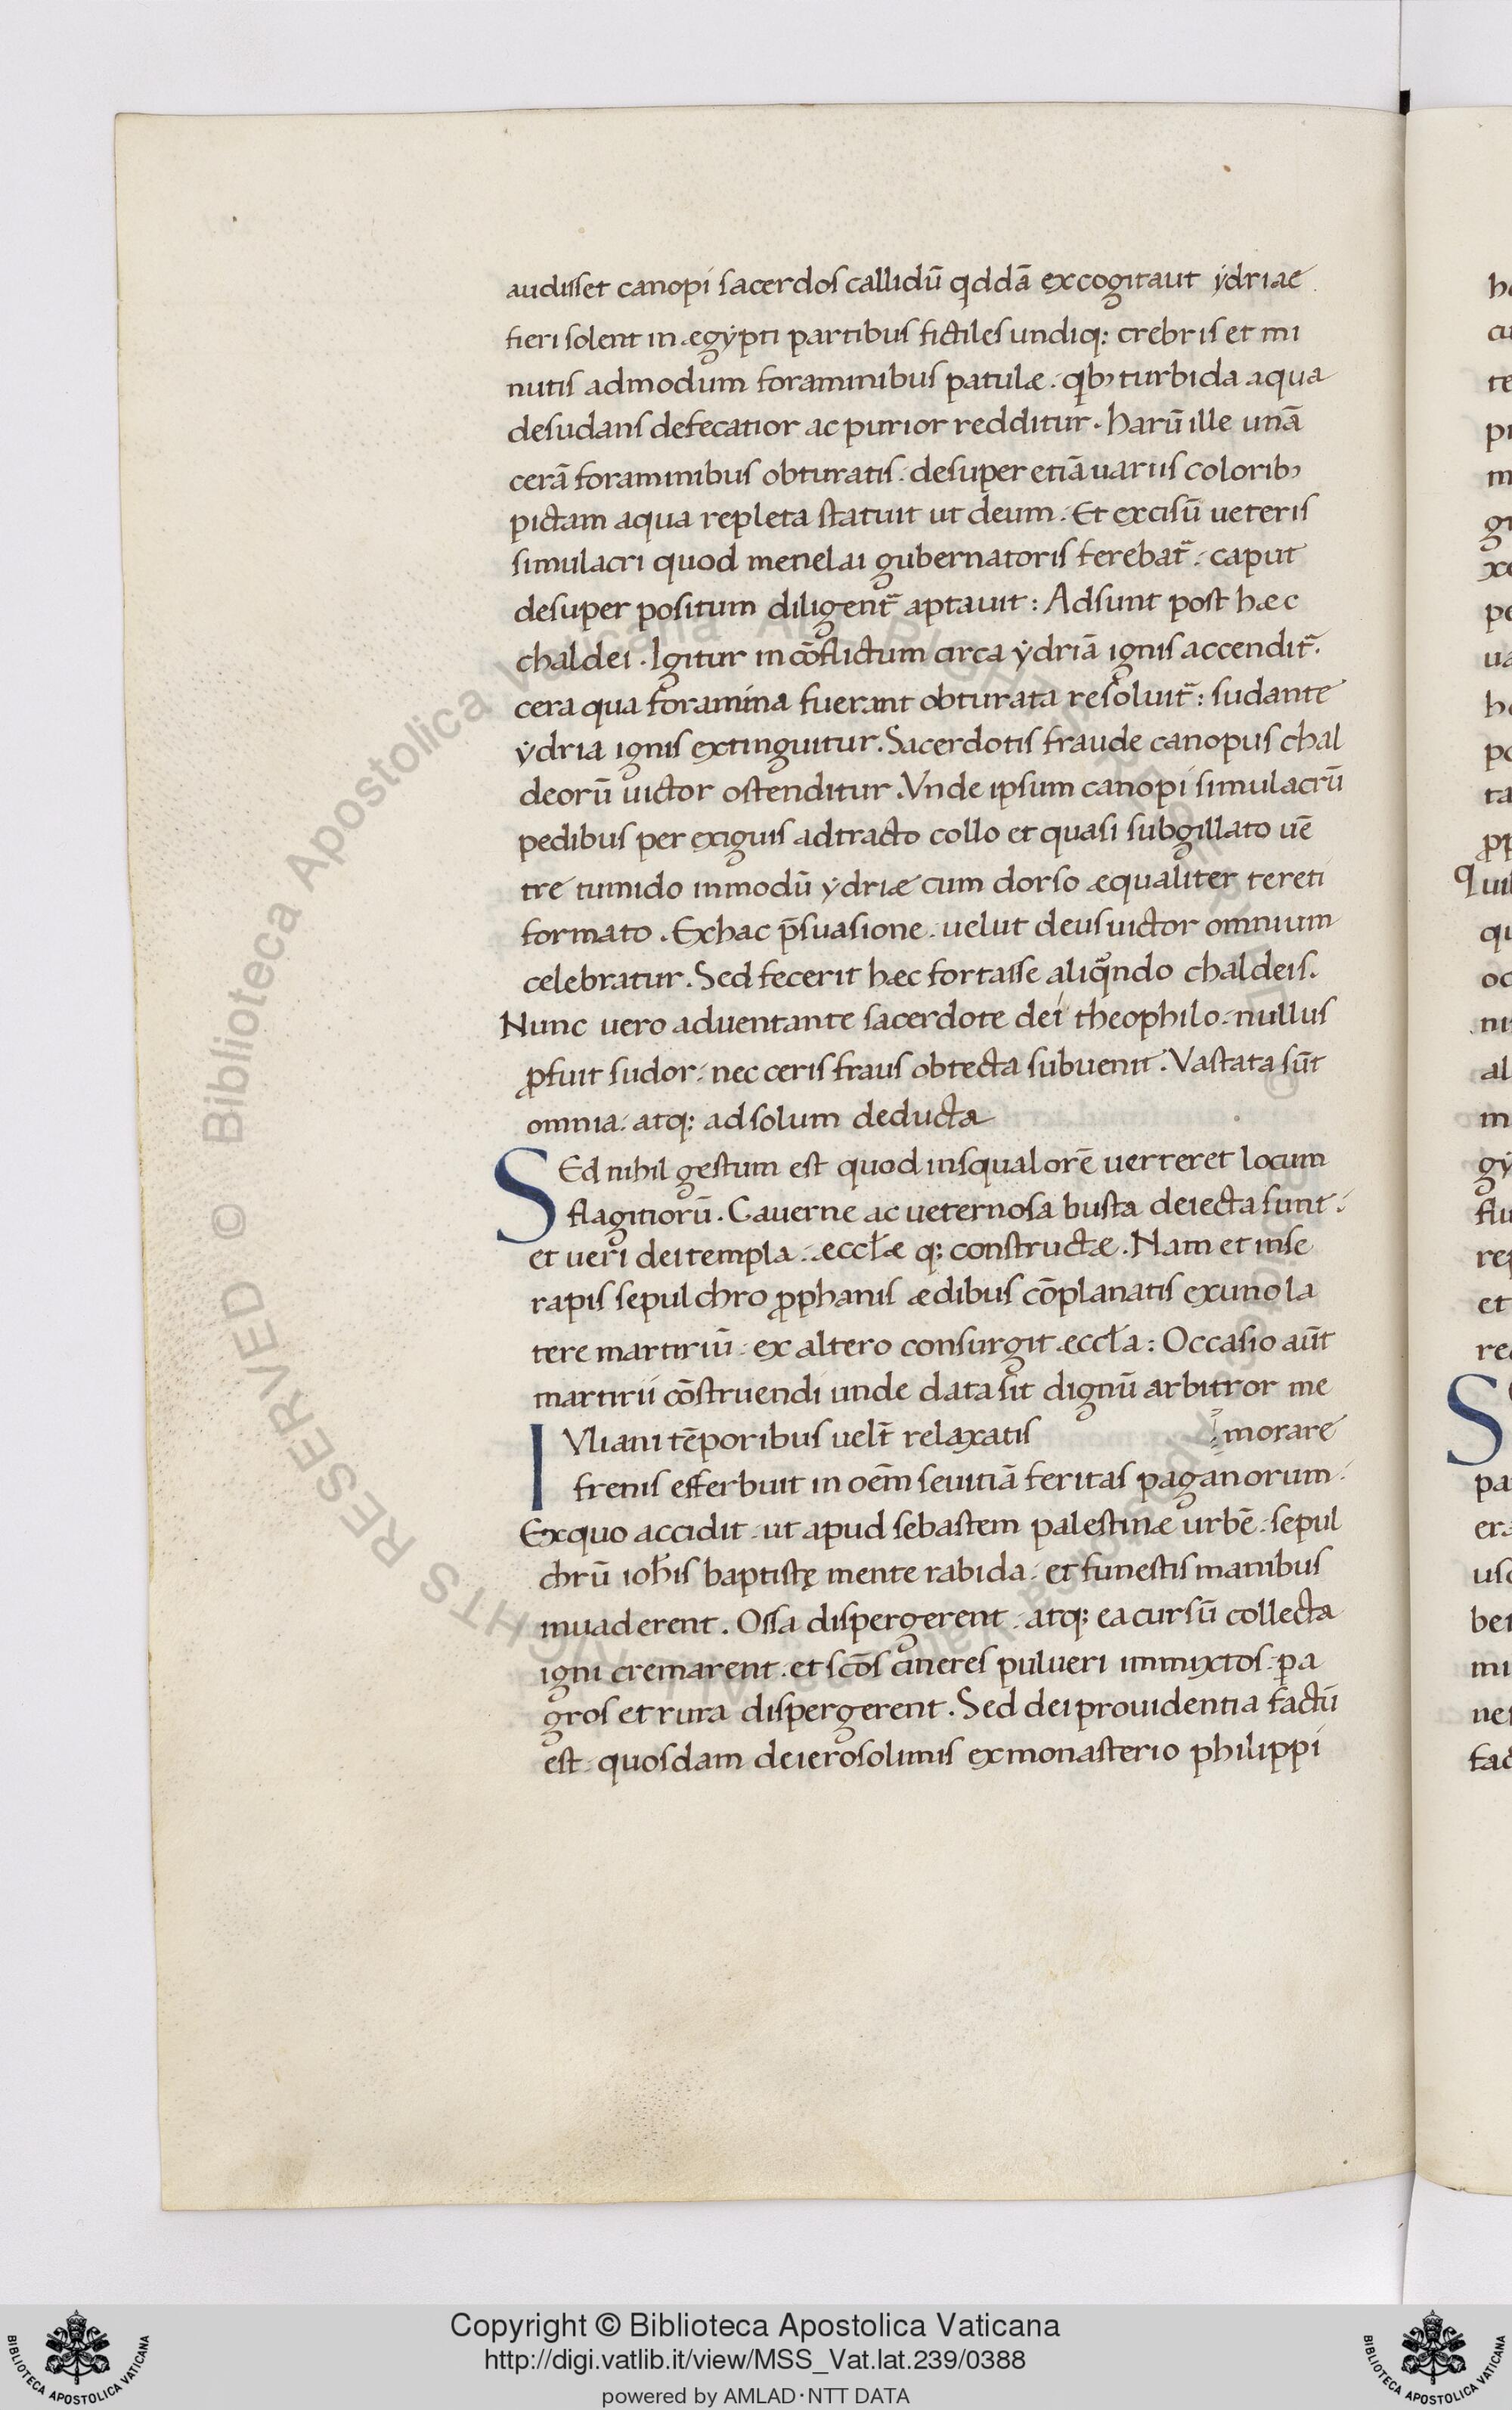 audisset canopi sacerdos callidū qddā excogitauit ẏdriae
fieri solent in ægẏpti partibus fictiles undiq; crebris et mi
nutis admodum foraminibus patulæ. qbꝫ turbida aqua
desudans defecatior ac purior redditur. harū ille unā
cerā foraminibus obturatis. desuper etiā uariis coloribꝫ
pictam aqua repleta statuit ut deum. Et excisū ueteris
simulacri quod menelai gubernatoris ferebat̄. caput
desuper positum diligent̄ aptauit: Adsunt post hæc
chaldei. Igitur in cōflictum circa ẏdriā ignis accendit̄.
cera qua foramina fuerant obturata resoluit̄: sudante
ẏdria ignis extinguitur. Sacerdotis fraude canopus chal
deorū uictor ostenditur. Vnde ipsum canopi simulacrū
pedibus per exiguis adtracto collo et quasi subgillato uē
tre tumido inmodū ẏdriæ cum dorso æqualiter tereti
formato. Exhac p̄suasione. uelut deus uictor omnium
celebratur. Sed fecerit hæc fortasse aliqͣndo chaldeis.
Nunc uero aduentante sacerdote dei theophilo. nullus
ꝓfuit sudor. nec ceris fraus obtecta subuenit. Vastata sūt
omnia. atq; ad solum deducta
SEd nihil gestum est quod insqualorē uerteret locum
flagitiorū. Cauerne ac ueternosa busta deiecta sunt.
et ueri dei templa. æccłæ q; constructæ. Nam et inse
rapis sepulchro ꝓphanis ædibus cōplanatis exuno la
tere martiriū. ex altero consurgit æccła: Occasio aūt
martirii cōstruendi unde data sit dignū arbitror me
IVliani tēporibus uelt̄ relaxatis morare
frenis efferbuit in oēm seuitiā feritas paganorum.
Exquo accidit. ut apud sebastem palestinæ urbē. sepul
chrū ioħis baptistę mente rabida. et funestis manibus
inuaderent. Ossa dispergerent. atq; ea cursū collecta
igni cremarent. et scōs cineres pulueri immixtos. p a
gros et rura dispergerent. Sed dei prouidentia factū
est. quosdam de ierosolimis ex monasterio philippi
© Biblioteca Apostolica Vaticana
Copyright © Biblioteca Apostolica Vaticana
http://digi.vatlib.it/view/MSS_Vat.lat.239/0388
powered by AMLAD·NTT DATA
BIBLIOTECA APOSTOLICA VATICANA
BIBLIOTECA APOSTOLICA VATICANA